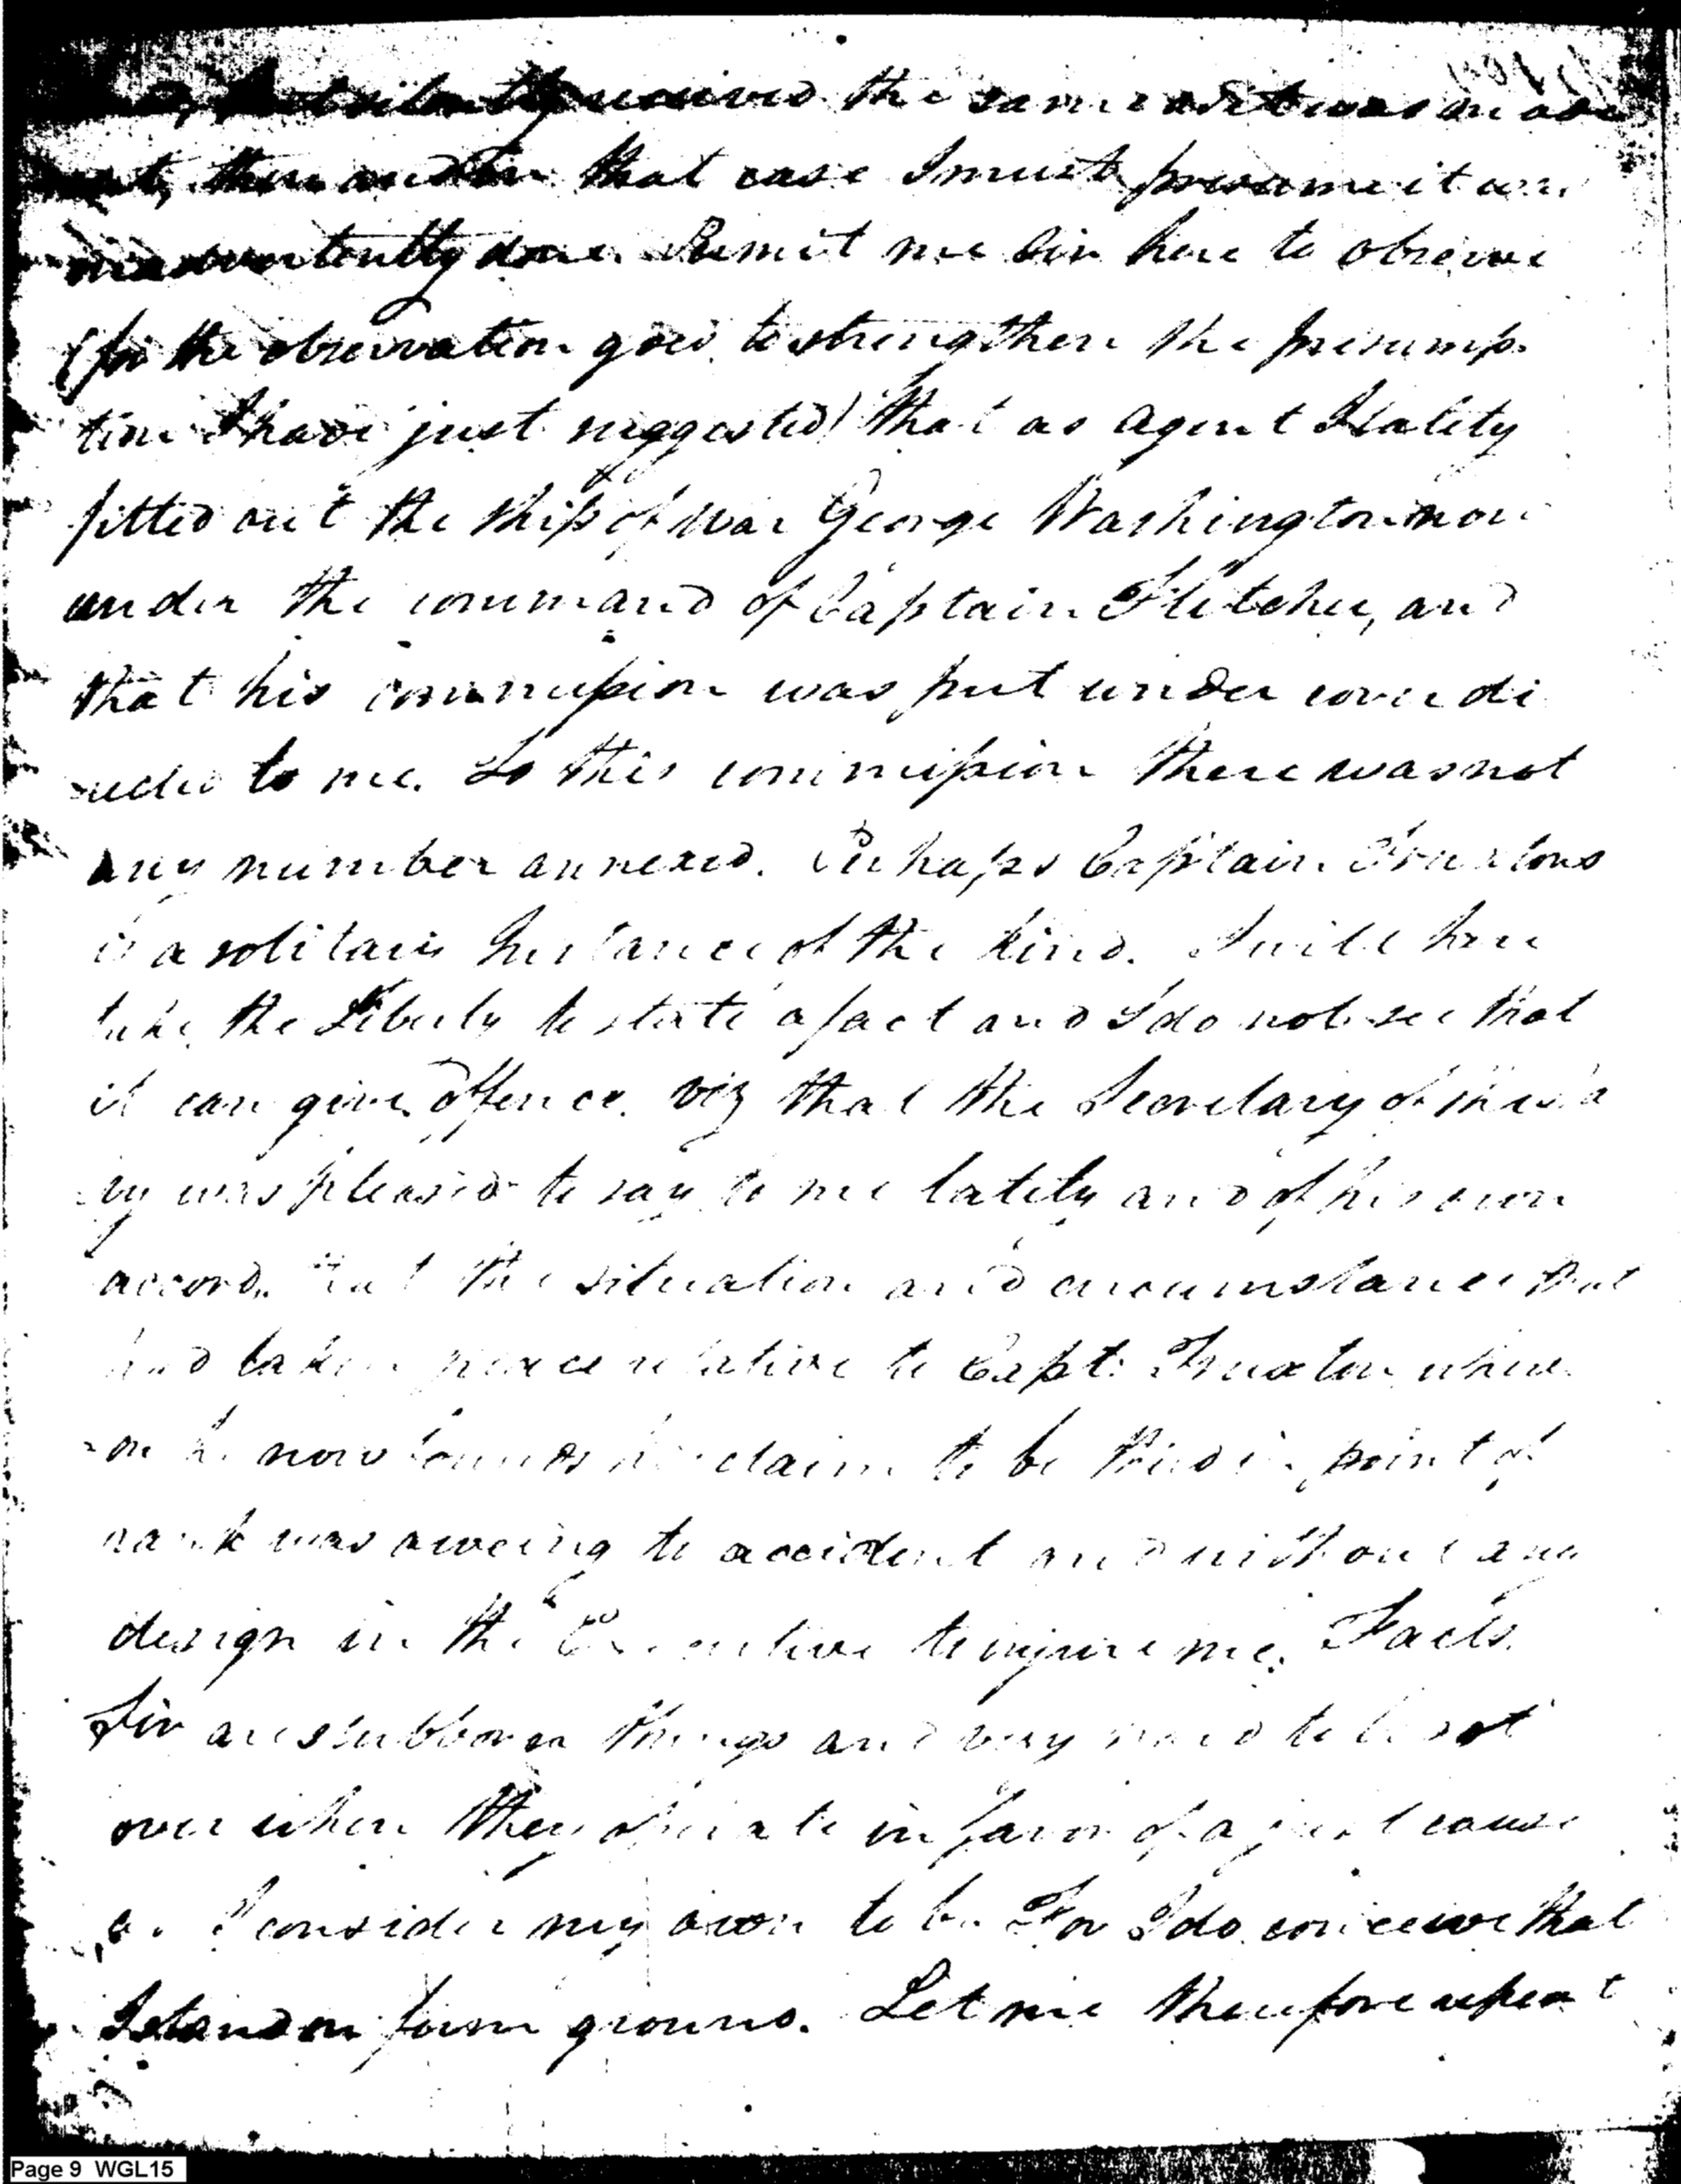 received the same as it was on
then and in that case I must presume it was
inadvertently done. Permit me Sir here to observe
(for the observation goes to strengthen the presump-
tion I have just suggested) that as agent I lately
fitted out the Ship of War George Washington now
under the command of Captain Fletcher, and
that his commission was put under cover di
rected to me. To this commission there was not
any number annexed. Perhaps Captain Truxtons
is a solitary Instance of the kind. I will here
take the Liberty to state a fact and I do not see that
it can give offence. viz that the Secretary of the Na
vy was pleased to say to me lately and of his own
accord, that the situation and circumstance that
had taken place relative to Capt. Truxton where
on he now founds his claim to be in point of
rank was oweing to accident and without any
design in the Executive to injure me. Facts
Sir are stubborn things and very hard to be got
over when they operate in favor of a just cause
as I consider my own to be. For I do conceive that
I stand on firm ground. Let me therefore repeat
Page 9 WGL15